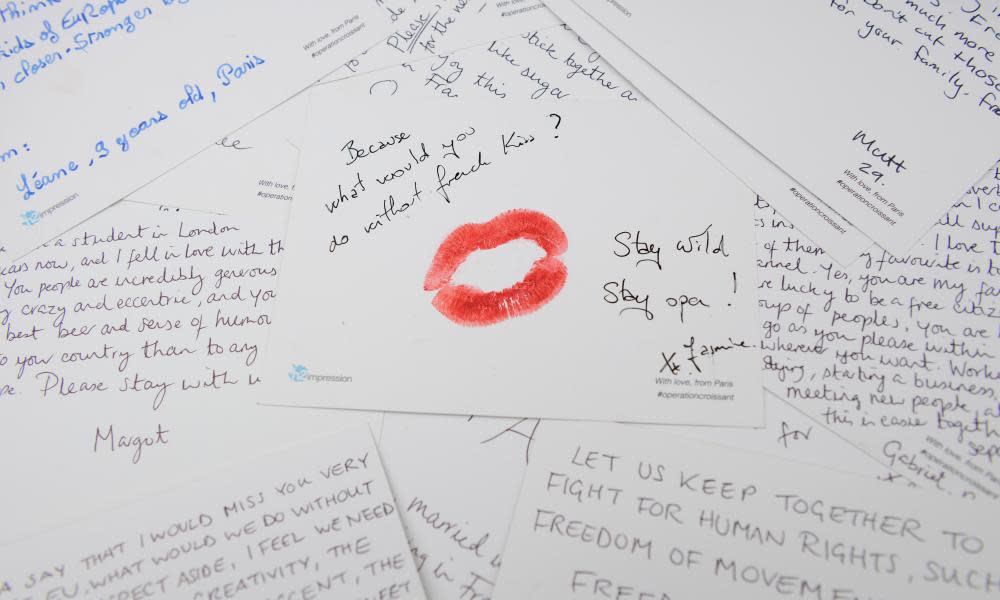 think
kids of Europe
closer. Stronger
Léane, 9 years old, Paris
impression
With love, from Paris
#operationcroissant
Please
for the
you this
Fra
stick together
like sugar
much more
Don't cut those
for your family.
Matt
29.
With love, from Paris
#operationcroissant
Because
what would you
do without french kiss ?
Stay wild
Stay open !
Xx Jasmine.
With love, from Paris
#operationcroissant
impression
a student in London
years now, and I fell in love with
You people are incredibly generous
crazy and eccentric, and you
best beer and sense of humou
your country than to any
Please stay with u
Margot
of them
favourite is
Yes, you are my
lucky to be a free
of peoples. You are
go as you please within
wherever you want. Work
studying, starting a business,
meeting new people, a
this is easier togeth
for
Gabriel
With love, from Paris
#operationcroissant
SAY THAT I WOULD MISS YOU VERY
EU, WHAT WOULD WE DO WITHOUT
ASIDE, I FEEL WE NEED
CREATIVITY, THE
THE
married
LET US KEEP TOGETHER TO
FIGHT FOR HUMAN RIGHTS, SUCH
FREEDOM OF MOVEMEN